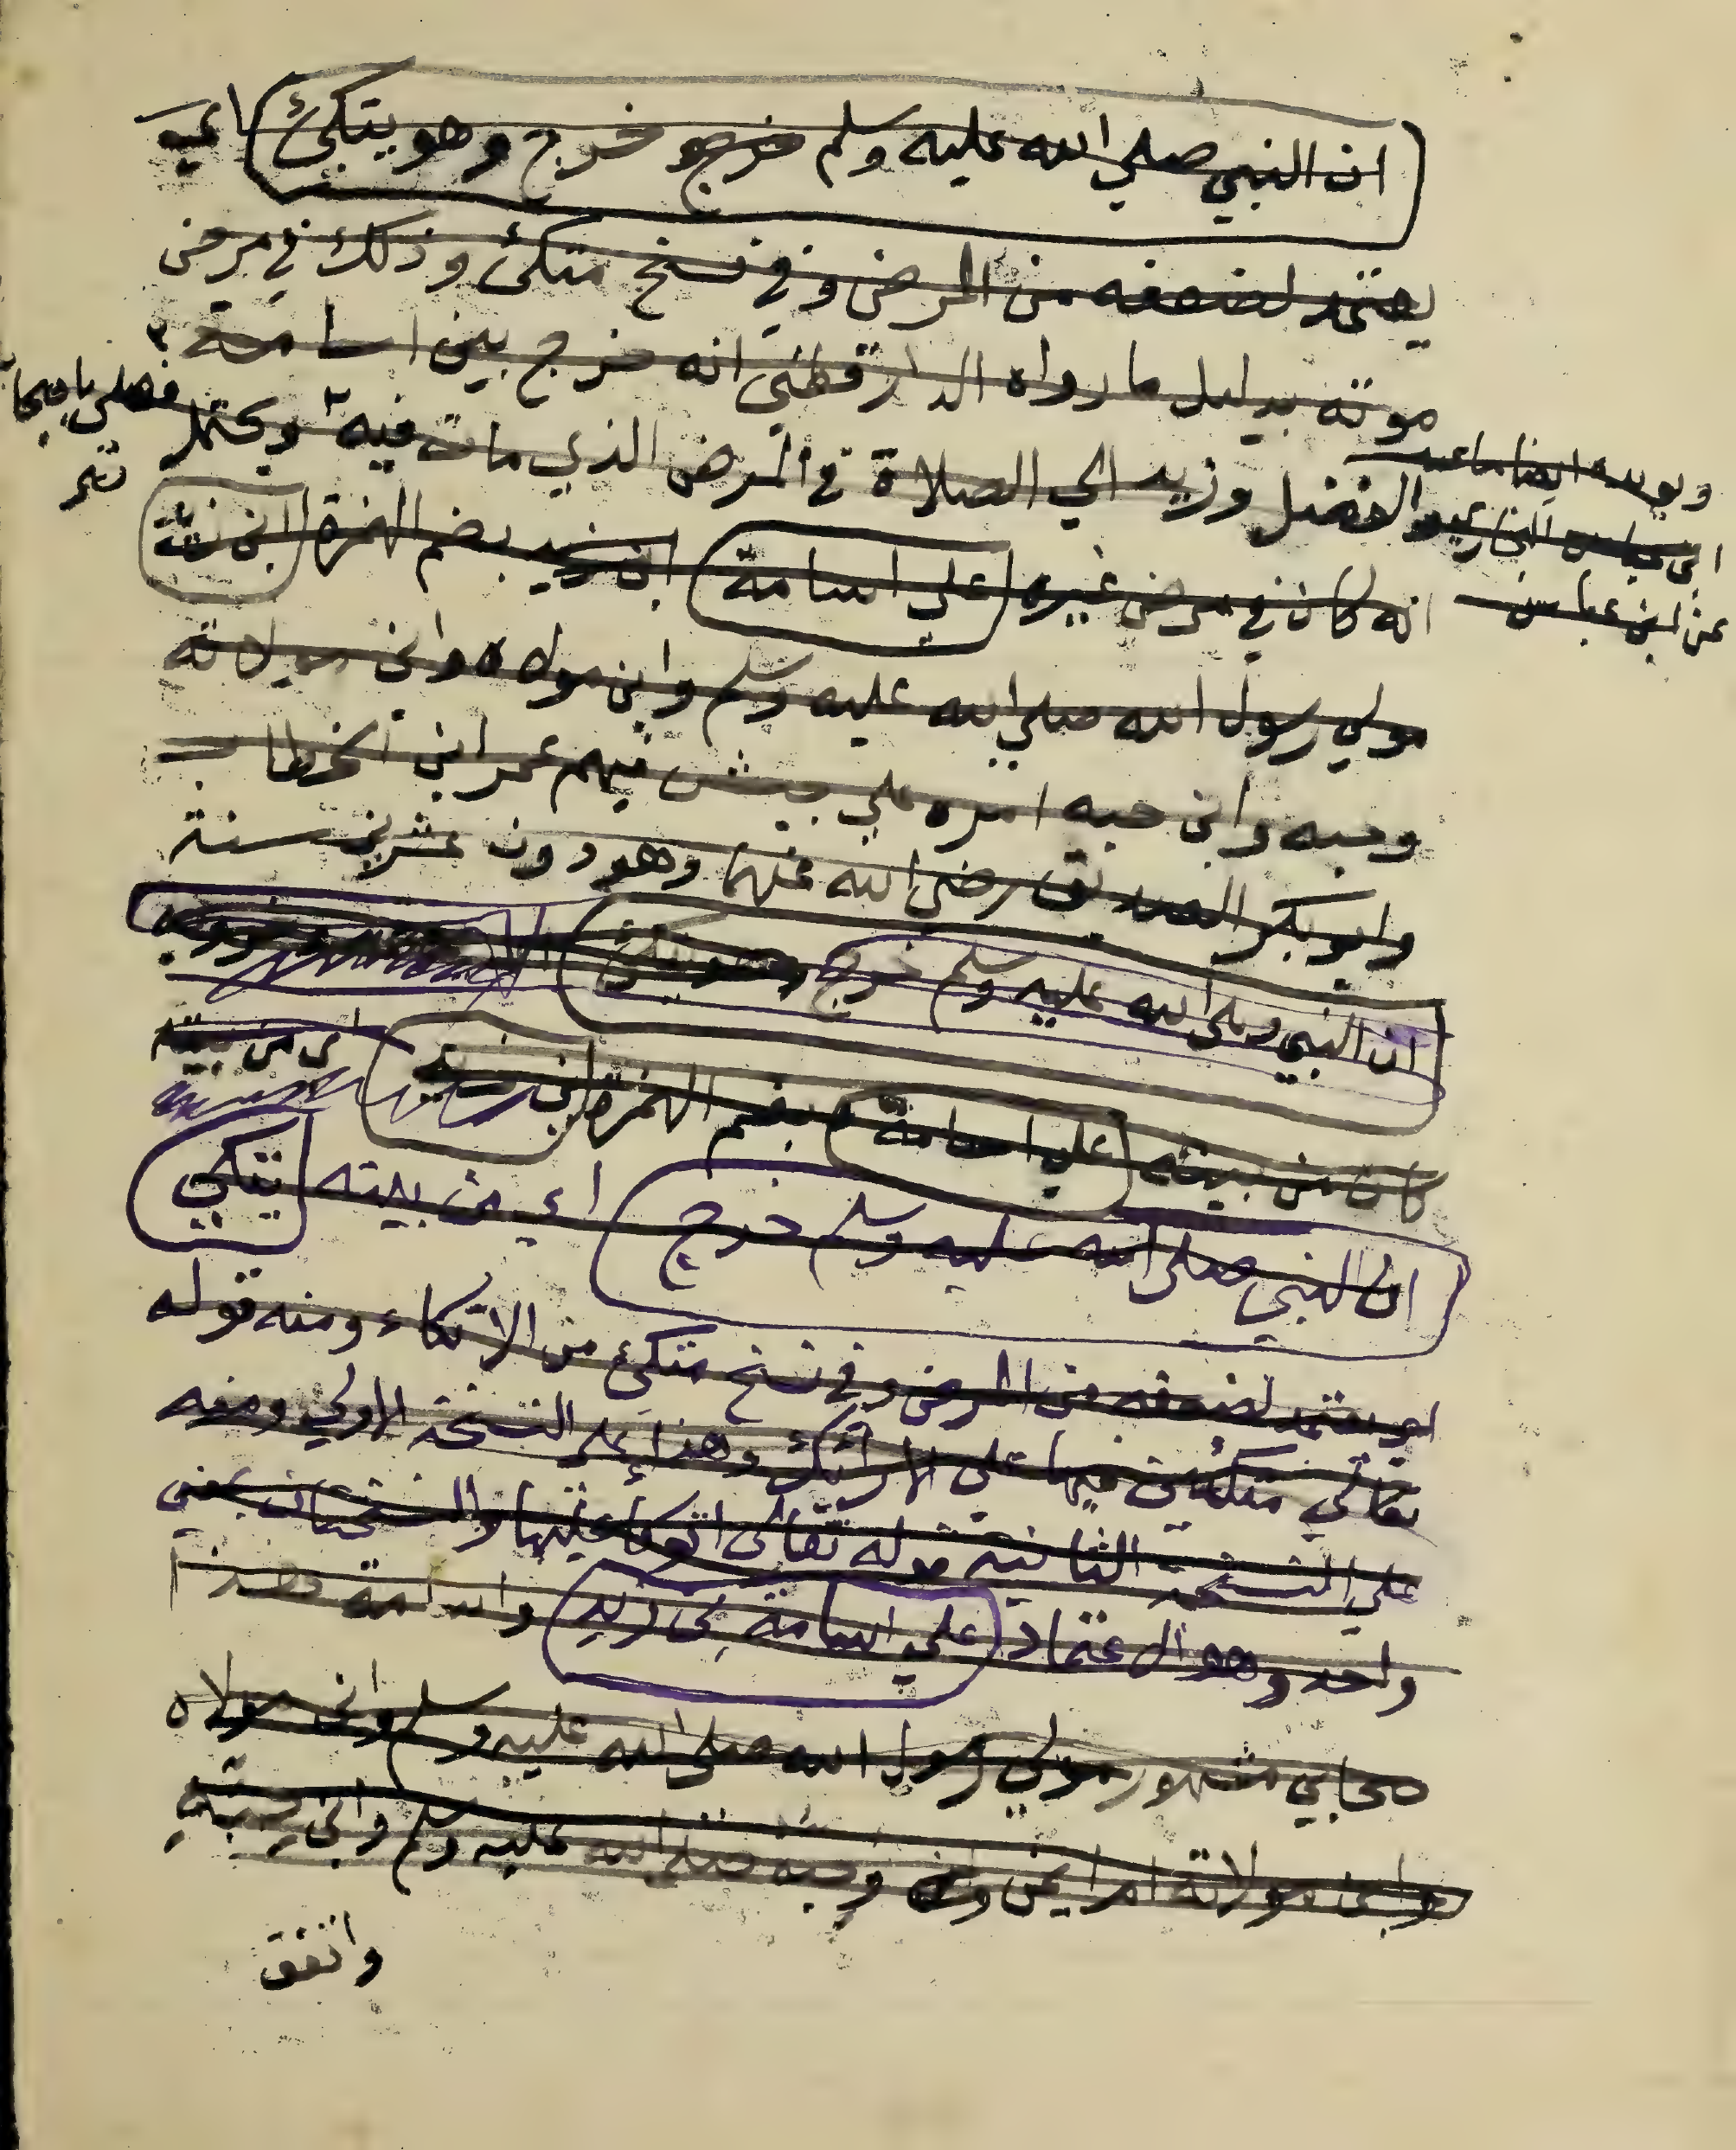 ان النبي صلي الله عليه وسلم خرج وهو يتكئ اي
يعتمد لضعفه من المرض وفي نسخ متكئ وذلك في مرض
موته بدليل ما رواه الدارقطني انه خرج بين اسامة
والفضل وزيد الي الصلاة في المرض الذي مات فيه ويحتمل
فصلي باصحابه
ويويده ايضا ما
ابن عباس
عن ابن عباس
انه كان في مرض غيره علي اسامة ابن زيد بضم الهمزة ابن زيد
مولي رسول الله صلي الله عليه وسلم وابن مولاه وابن مولاته
وحبه وابن حبه امره علي جيش فيهم عمر ابن الخطاب
وابو بكر الصديق رضي الله عنهما وهو دون عشرين سنة
ان النبي صلى الله عليه وسلم خرج
اي من بيته
كان من بيته علي اسامة بضم الهمزة ابن زيد
ان النبي صلى الله عليه وسلم خرج اي من بيته يتكي
اي يعتمد لضعفه من المرض وفي نسخ متكئ من الاتكاء ومنه قوله
تعالي متكئين فيها على الارائك وهذا على النسخة الاولي ومنه
علي النسخة الثانية قوله تعالى اتوكأ عليها والنسختان بمعني
واحد وهو الاعتماد علي اسامة بن زيد واسامة هذا
صحابي مشهور مولي رسول الله صلى الله عليه وسلم وابن مولاه
وابن مولاته ام ايمن وحبه صلى الله عليه وسلم وابن حبه
واتفق